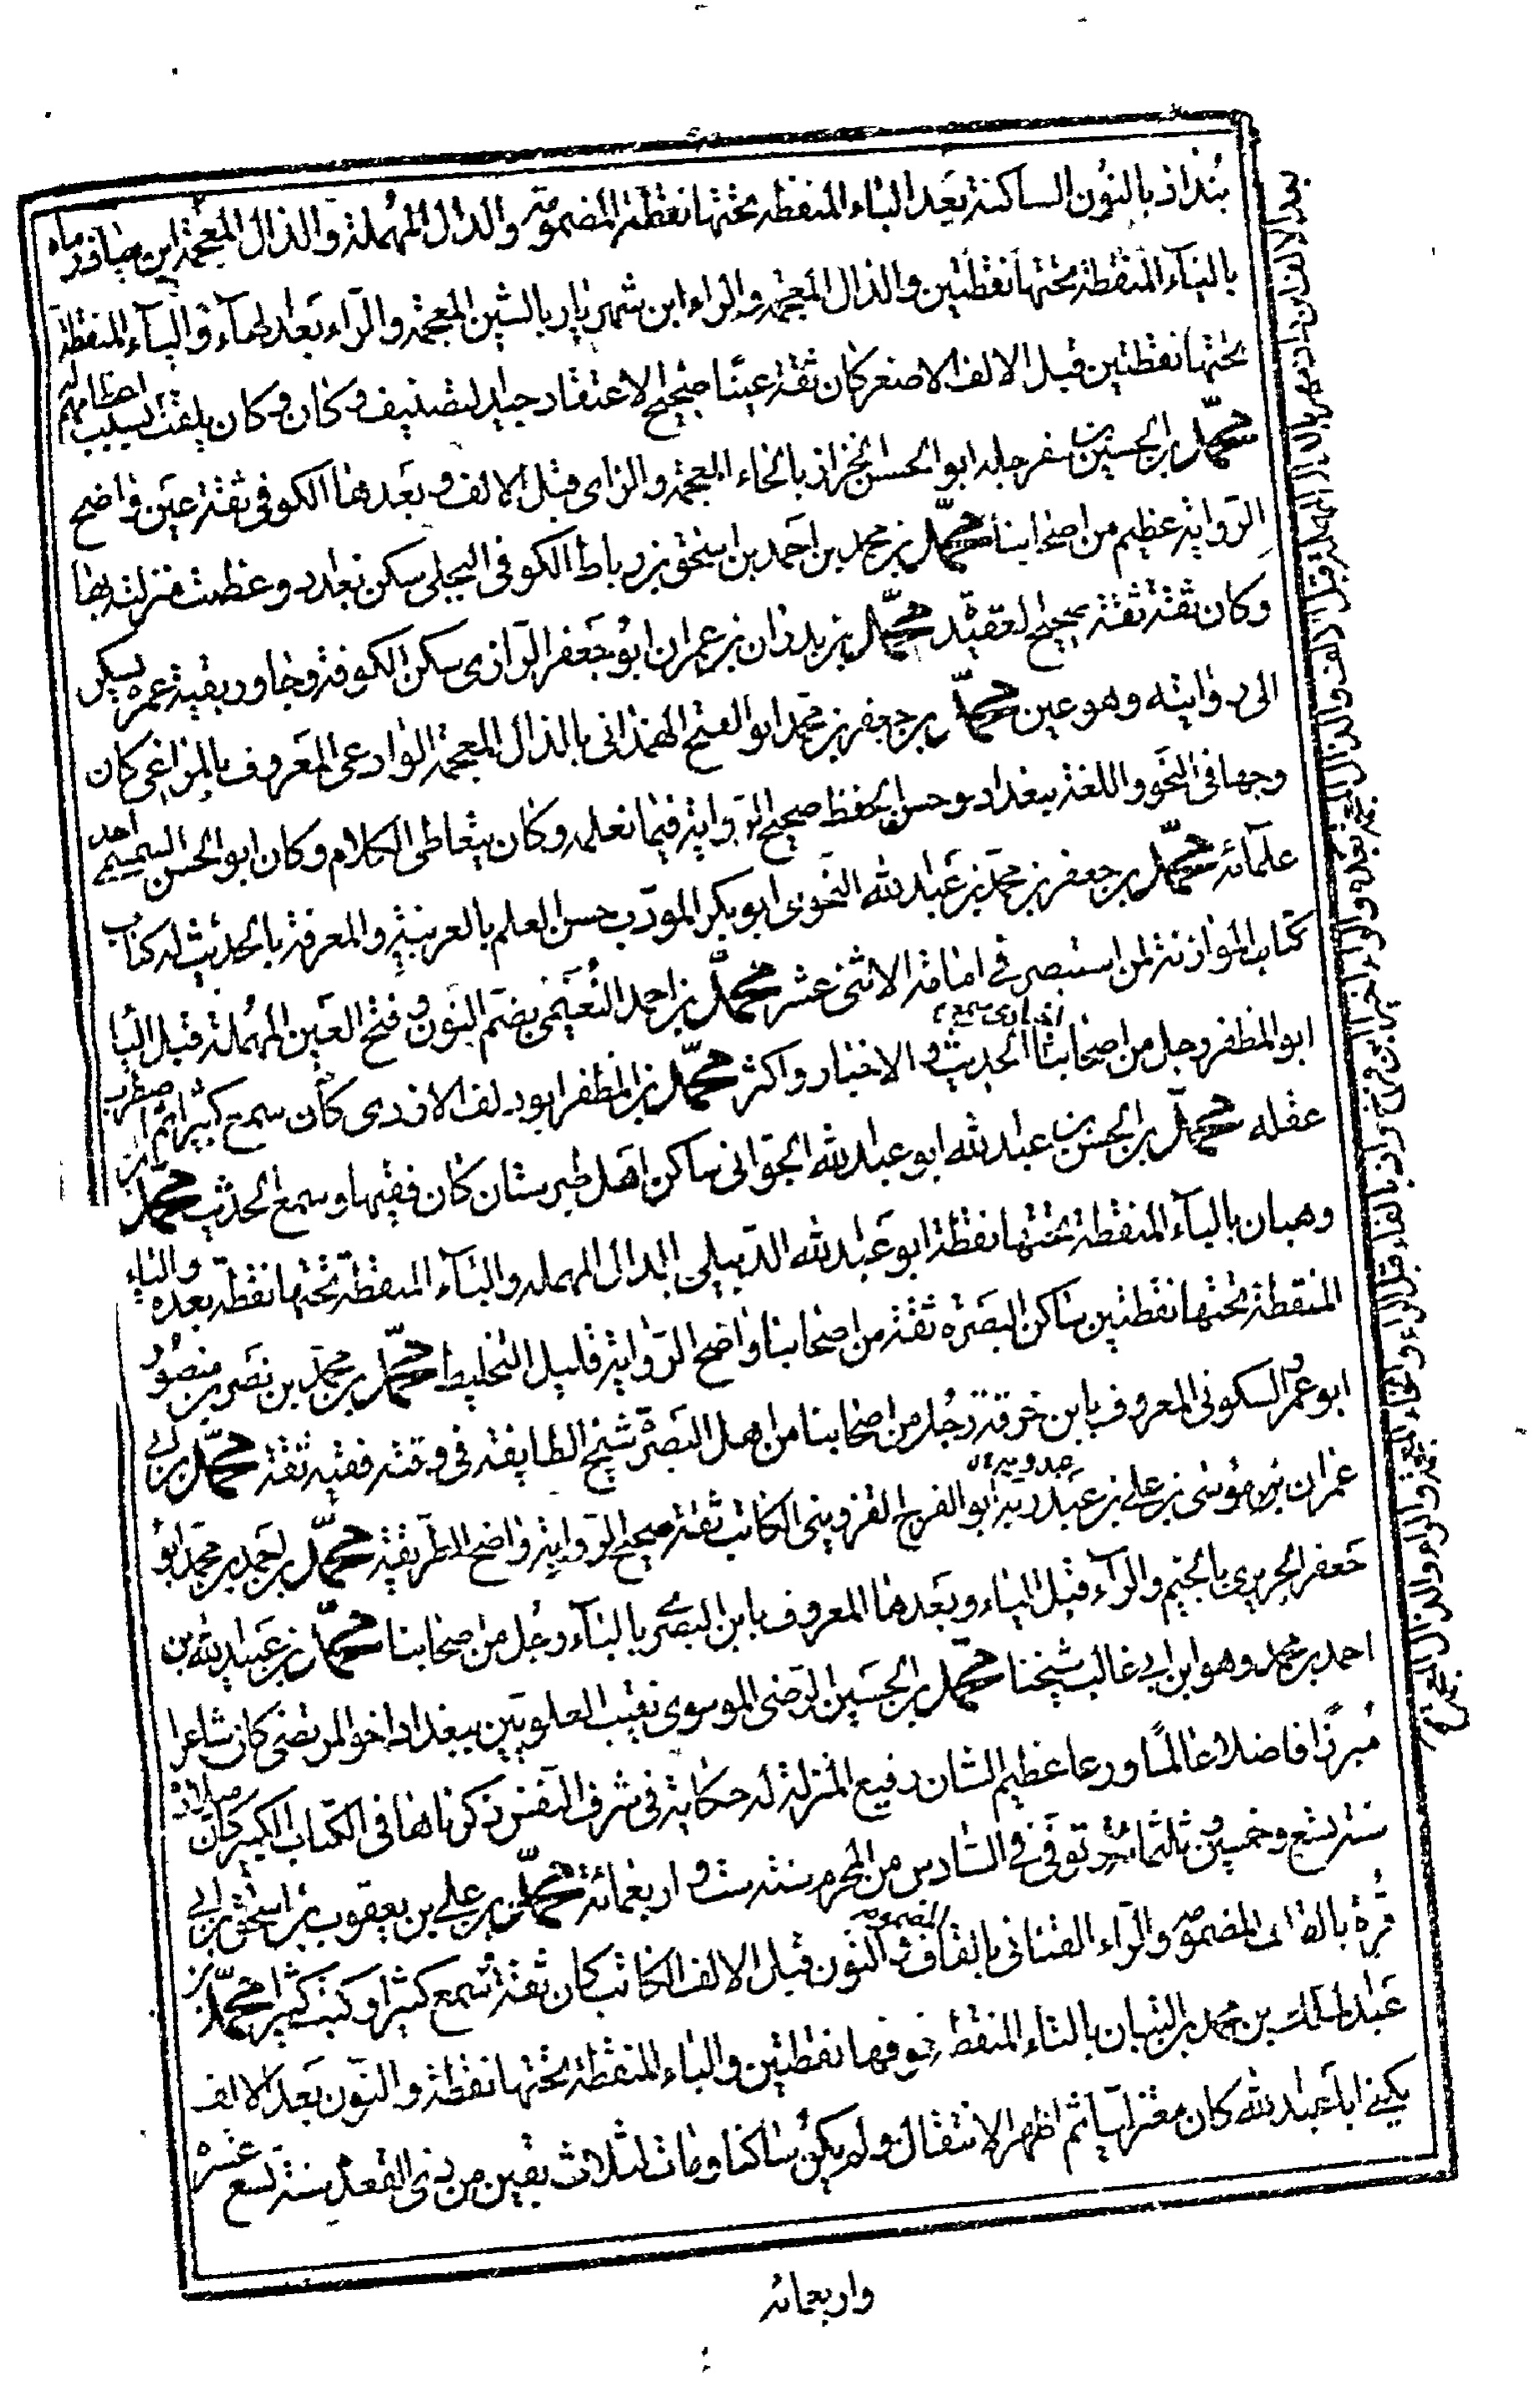 بنداذ بالنون الساكنة بعد الباء المنقطة تحتها نقطة المضمومة والدال المهملة والذال المعجمة ابن ماه
بالياء المنقطة تحتها نقطتين والذال المعجمة والراء ابن شهريار بالشين المعجمة والراء بعد الهاء والياء المنقطة
تحتها نقطتين قبل الالف الاصغر كان ثقة عينا صحيح الاعتقاد جيد التصنيف وكان وكان يلقب بسيب
محمد بن الحسين بن سفرجلة ابو الحسن الخزاز بالخاء المعجمة والزاى قبل الالف وبعدها الكوفى ثقة عين واضح
الرواية عظيم من اصحابنا محمد بن محمد بن احمد بن اسحق بن رباط الكوفى البجلى سكن بغداد وعظمت منزلته بها
وكان ثقة ثقة صحيح العقيدة محمد بن بدران بن عمران ابو جعفر الرازى سكن الكوفة وجاور بقية عمره يسكن
الى روايته وهو عين محمد بن جعفر بن محمد ابو الفتح الهمذانى بالذال المعجمة الوادعى المعروف بالمراغى كان
وجها فى النحو واللغة ببغداد حسن الحفظ صحيح الرواية فيما نعلمه وكان يتعاطى الكلام وكان ابو الحسن السمسمى احد
علمائه محمد بن جعفر بن محمد بن عبد الله النحوى ابو بكر المودب حسن العلم بالعربية والمعرفة بالحديث له كتاب
كتاب الموازنة لمن استبصر فى امامة الاثنى عشر محمد بن احمد النعيمى بضم النون وفتح العين المهملة قبل اليا
ابو المظفر رجل من اصحابنا اخبارى سمع الحديث والاخبار واكثر محمد بن المظفر ابو دلف الازدى كان سمع كثيرا ثم اضطرب
عقله محمد بن الحسن بن عبد الله ابو عبد الله الجوانى ساكن اهل طبرستان كان فقيها وسمع الحديث محمد بن
وهبان بالياء المنقطة تحتها نقطة ابو عبد الله الدبيلى بالدال المهملة والباء المنقطة تحتها نقطة بعده والياء
المنقطة تحتها نقطتين ساكن البصرة ثقة من اصحابنا واضح الرواية قليل التخليط محمد بن محمد بن نصر بن منصور
ابو عمرو السكونى المعروف بابن خرقة رجل من اصحابنا من اهل البصرة شيخ الطايفة فى وقته فقيه ثقة محمد بن ابى
عمران بن موسى بن على بن عبدربه عبدويه ابو الفرج القزوينى الكاتب ثقة صحيح الرواية واضح الطريقة محمد بن احمد بن محمد ابو
جعفر الجريرى بالجيم والراء قبل الياء وبعدها المعروف بابن البصرى بالباء رجل من اصحابنا محمد بن عبد الله بن
احمد بن محمد وهو ابن ابى غالب شيخنا محمد بن الحسين الرضى الموسوى نقيب العلويين ببغداد اخو المرتضى كان شاعرا
مبرزا فاضلا عالما ورعا عظيم الشان رفيع المنزلة له حكاية فى شرف النفس ذكرناها فى الكتاب الكبير كان ميلاده
سنة تسع وخمسين وثلثمائة وتوفى فى السادس من المحرم سنة ست واربعمائة محمد بن على بن يعقوب بن اسحق بن ابى
قرة بالقاف المضمومة والراء القنانى بالقاف المضمومة والنون قبل الالف الكاتب كان ثقة سمع كثيرا وكتب كثيرا محمد بن
عبد الملك بن محمد بن التبان بالتاء المنقطة فوقها نقطتين والباء المنقطة تحتها نقطة والنون بعد الالف
يكنى ابا عبد الله كان معتزليا ثم اظهر الانتقال ولم يكن ساكنا ومات لثلاث بقين من ذى القعدة سنة تسع عشرة
واربعمائه